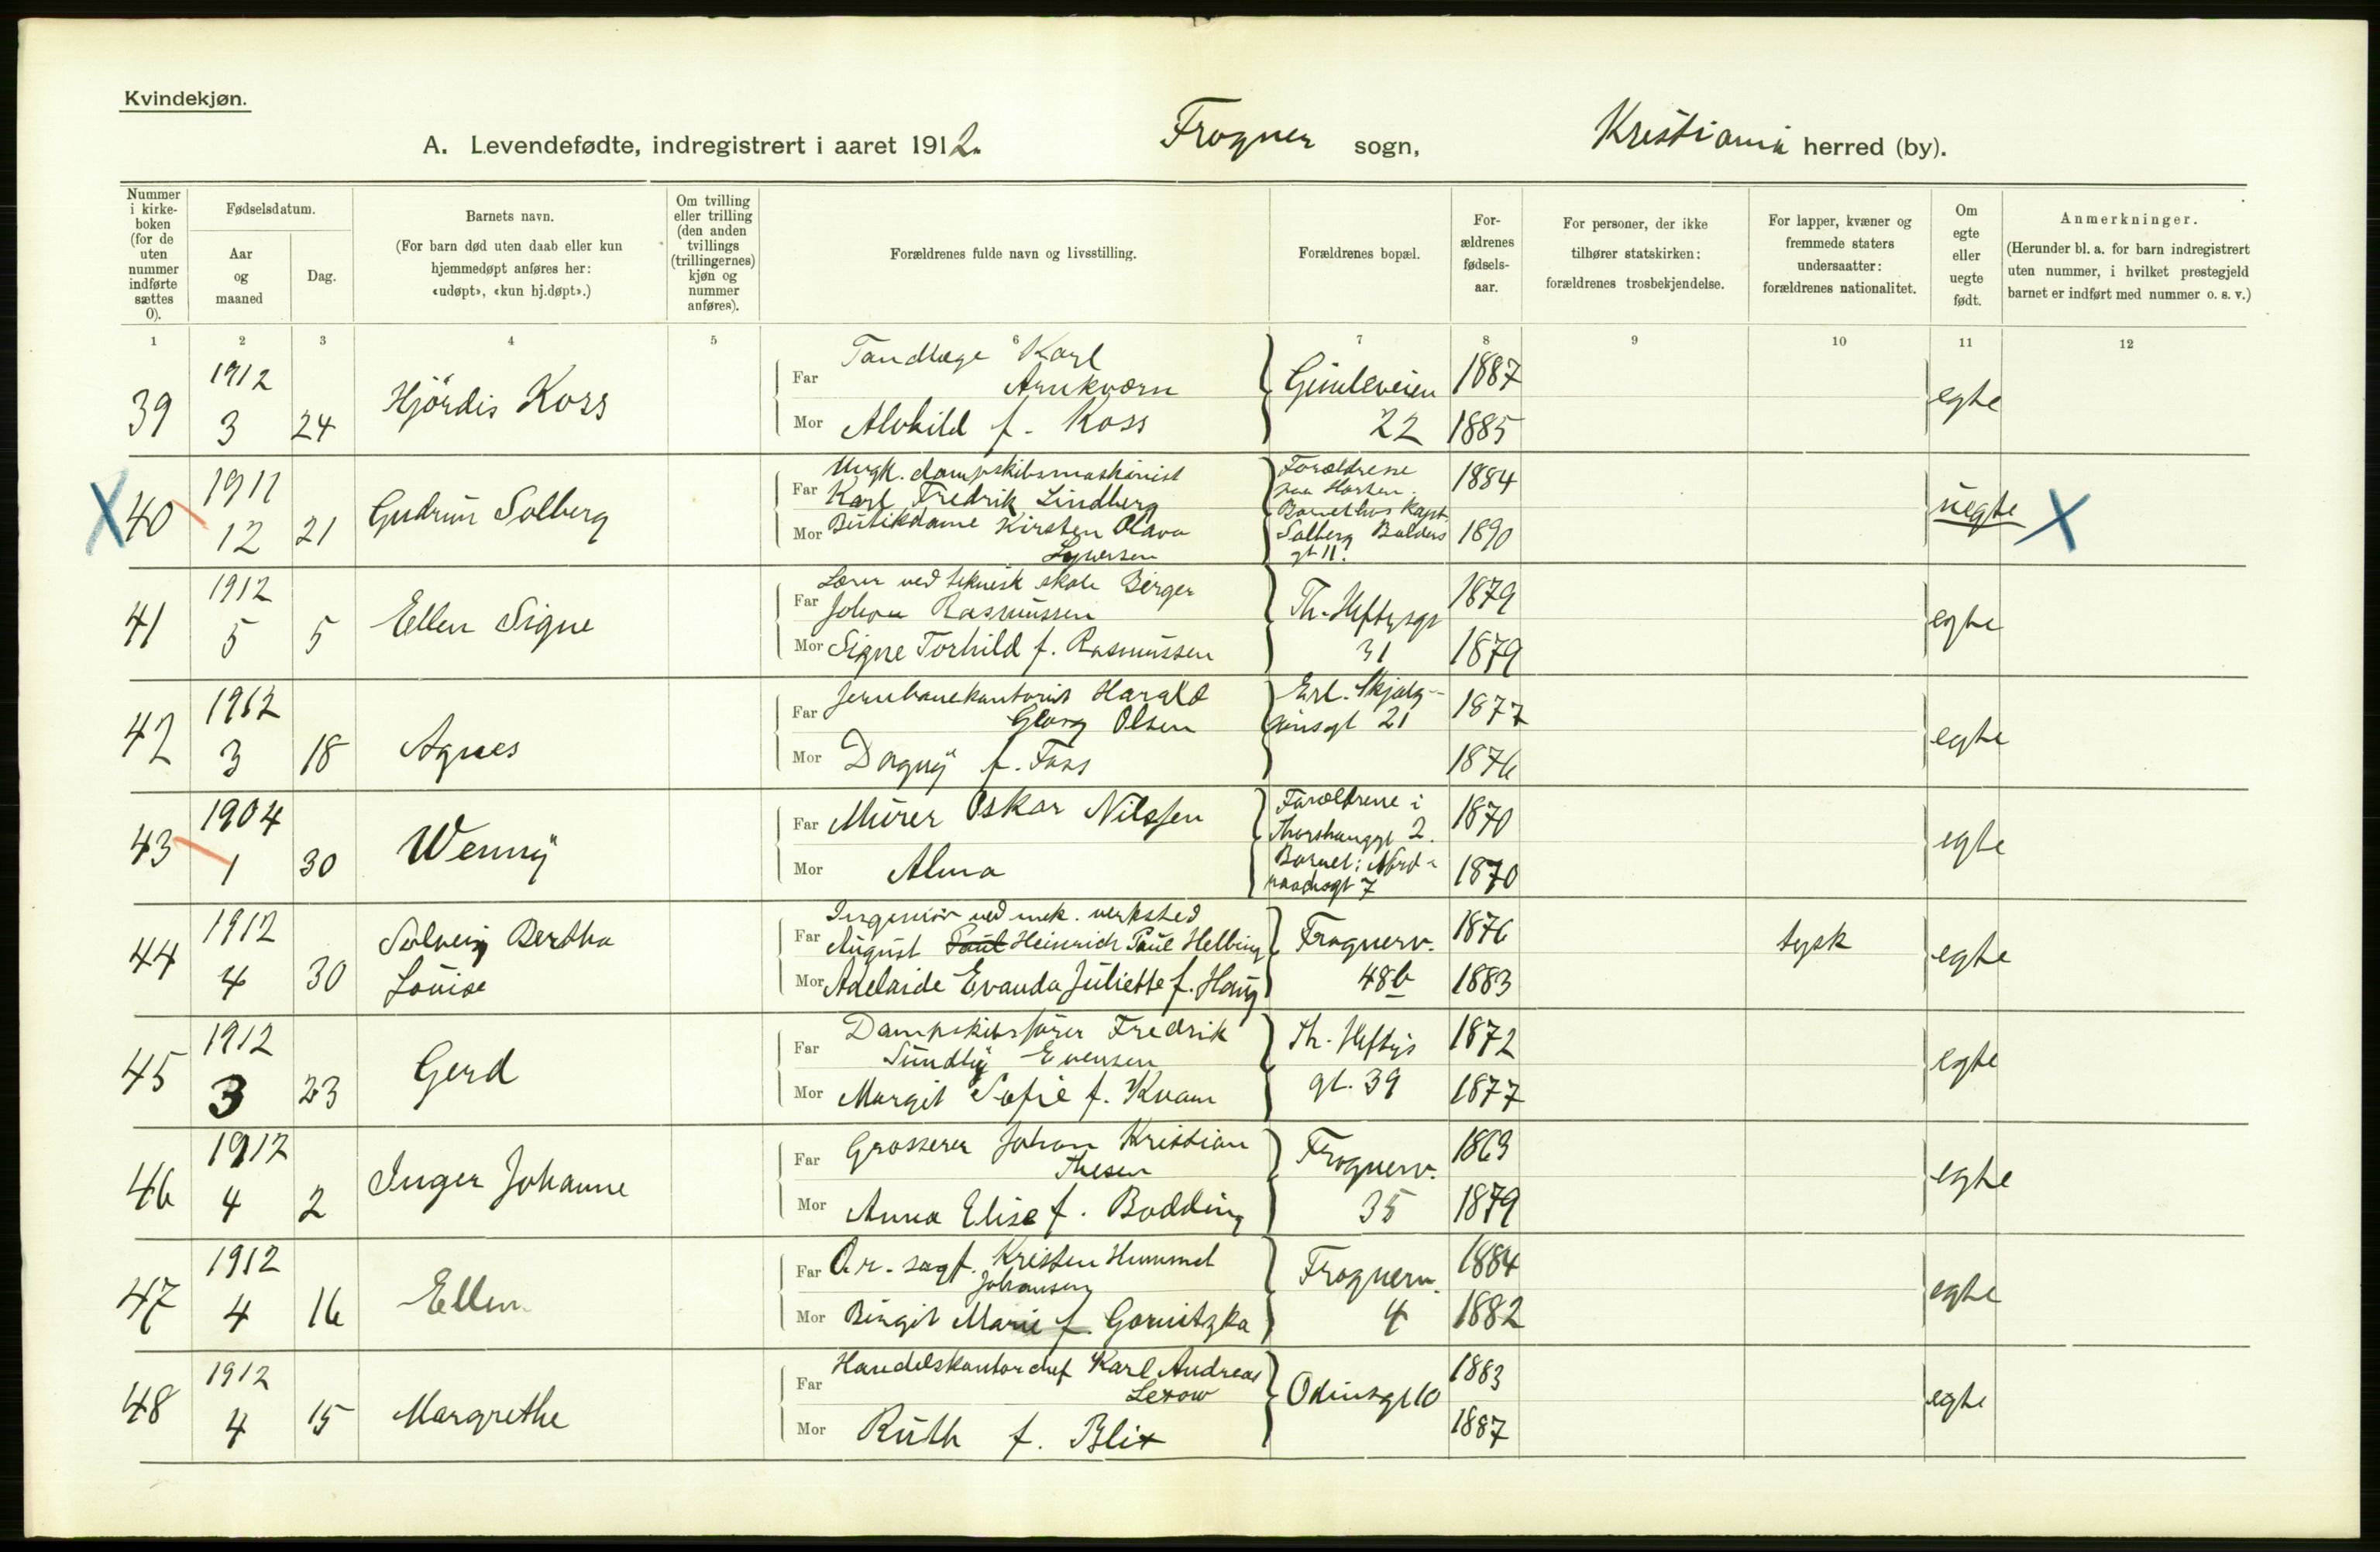 Kvindekjøn.
A. Levendefødte, indregistrert i aaret 1912. Frogner sogn, Kristiania herred (by).
Nummer i kirkeboken (for de uten nummer indførte sættes 0).
Fødselsdatum.
Aar og maaned
Dag.
Barnets navn.
(For barn død uten daab eller kun hjemmedøpt anføres her: «udøpt», «kun hj.døpt».)
Om tvilling eller trilling (den anden tvillings (trillingernes) kjøn og nummer anføres).
Forældrenes fulde navn og livsstilling.
Forældrenes bopæl.
Forældrenes fødselsaar.
For personer, der ikke tilhører statskirken: forældrenes trosbekjendelse.
For lapper, kvæner og fremmede staters undersaatter: forældrenes nationalitet.
Om egte eller uegte født.
Anmerkninger.
(Herunder bl. a. for barn indregistrert uten nummer, i hvilket prestegjeld barnet er indført med nummer o. s. v.)
1 2 3 4 5 6 7 8 9 10 11 12
39 1912 3 24 Hjördis Koss
Far Tandlæge Karl Arnkværn
Mor Alvhild f. Koss
Gimleveien 22
1887
1885
egte
X 40 1911 12 21 Gudrun Solberg
Far Ungk. dampskibsmaskinist
Karl Fredrik Lindberg
Mor Butikdame Kirsten Olava
Forældrene paa Horten.
Barnet hos Kapt. Solberg Balders gt 11.
1884
1890
uegte X
41 1912 5 5 Ellen Signe
Far Lærer ved teknisk skole Birger
Johan Rasmussen
Mor Signe Torhild f. Rasmussen
Th. Heftysgt 31
1879
1879
egte
42 1912 3 18 Agnes
Far Jernbanekontorist Harald
Georg Olsen
Mor Dagny f. Foss
Erl. Skjalgsønsgt 21
1877
1876
egte
43 1904 1 30 Wenny
Far Murer Oskar Nilssen
Mor Alma
Forældrene i Thorshauggt 2.
Barnet: Nordraachsgt 7
1870
1870
egte
44 1912 4 30 Solveig Bertha
Louise
Far Ingeniør ved mek. verksted
August Paul Heinrich Paul Helbing
Mor Adelaide Evanda Juliette f. Haug
Frognerv. 48b
1876
1883
tysk
egte
45 1912 3 23 Gerd
Far Dampskibsfører Fredrik
Sundby Evensen
Mor Margit Sofie f. Kvam
Th. Heftys gt. 39
1872
1877
egte
46 1912 4 2 Inger Johanne
Far Grosserer Johan Kristian
Thesen
Mor Anna Elise f. Bodding
Frognerv. 35
1863
1879
egte
47 1912 4 16 Ellen
Far O.r. sagf. Kristen Hummel
Johansen
Mor Birgit Marie f. Gornitzka
Frognerv. 4
1884
1882
egte
48 1912 4 15 Margrethe
Far Handelskontorchef Karl Andreas
Lexow
Mor Ruth f. Blix
Odinsgt 10
1883
1887
egte